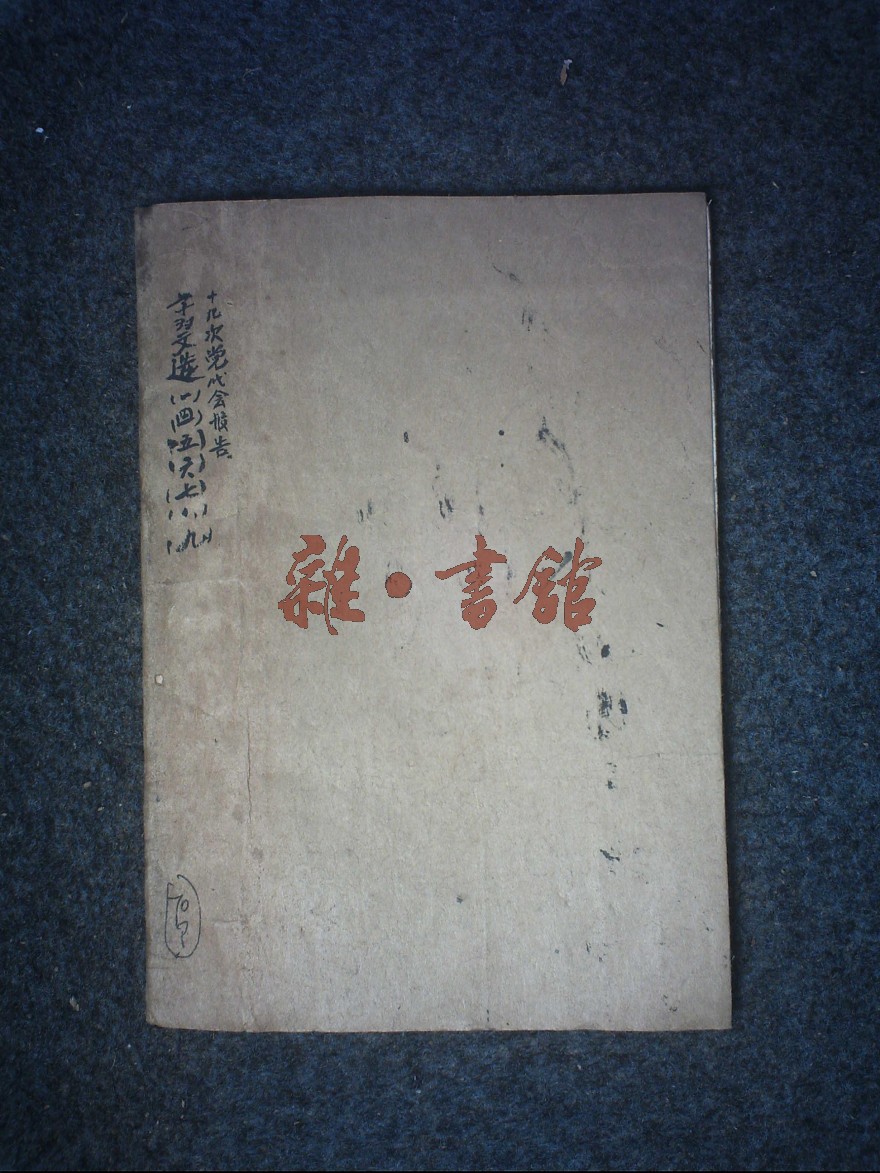 十几次党代会报告。
学习文选(一)(四)(五)(六)(七)(八)(九)
雜·書館